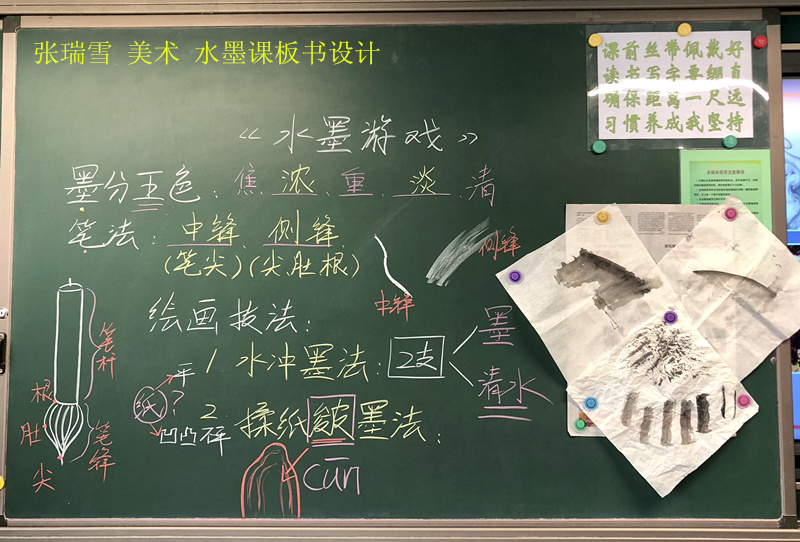 张瑞雪 美术 水墨课板书设计
课前丝带佩戴好
读书写字要绷直
确保距离一尺远
习惯养成我坚持
《水墨游戏》
墨分五色：焦 浓 重 淡 清
笔法：中锋 侧锋
(笔尖)(尖.肚根)
中锋
侧锋
绘画技法：
1 水冲墨法：2支
墨
清水
2 揉纸皴墨法：
cūn
纸?
平
凹凸 碎
笔杆
根
肚
尖
笔锋